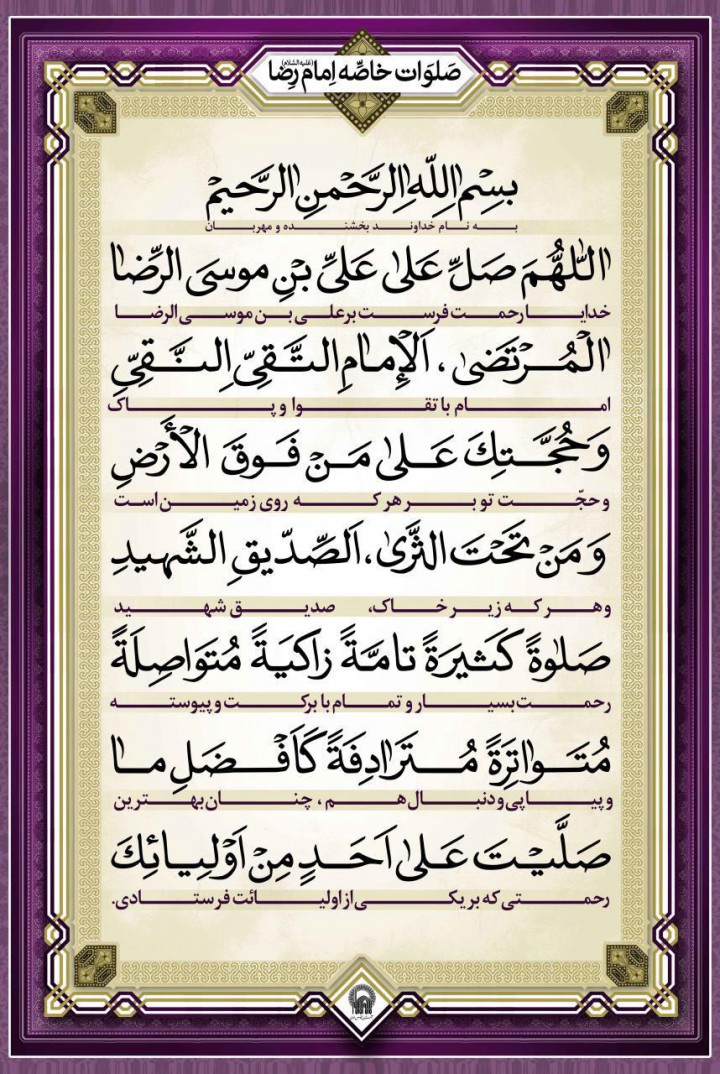 صَلَوَات خاصِّه اِمام رِضا (علیه‌السّلام)
بِسْمِ اللّٰهِ الرَّحْمٰنِ الرَّحیمْ
به نام خداوند بخشنده و مهربان
اَللّٰهُمَّ صَلِّ عَلیٰ عَلیِّ بْنِ موسَی الرِّضَا
خدایا رحمت فرست بر علی بن موسی الرضا
الْمُرْتَضیٰ ، اَلْإِمامِ التَّقِیِّ النَّقِیِّ
امام با تقوا و پاک
وَ حُجَّتِكَ عَلیٰ مَنْ فَوقَ الْأَرْضِ
و حجّت تو بر هر که روی زمین است
وَ مَنْ تَحْتَ الثَّریٰ، اَلصِّدّیقِ الشَّهیدِ
و هر که زیر خاک، صدیق شهید
صَلٰوةً كَثیرَةً تامَّةً زاكیَةً مُتَواصِلَةً
رحمت بسیار و تمام با برکت و پیوسته
مُتَواتِرَةً مُتَرادِفَةً كَاَفْضَلِ ما
و پیاپی و دنبال هم ، چنان بهترین
صَلَّیْتَ عَلیٰ اَحَدٍ مِنْ اَوْلِیائِكَ
رحمتی که بر یکی از اولیائت فرستادی.